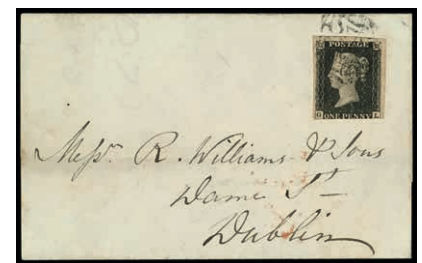 POSTAGE
ONE PENNY
Messrs. R. Williams & Sons
Dame St
Dublin